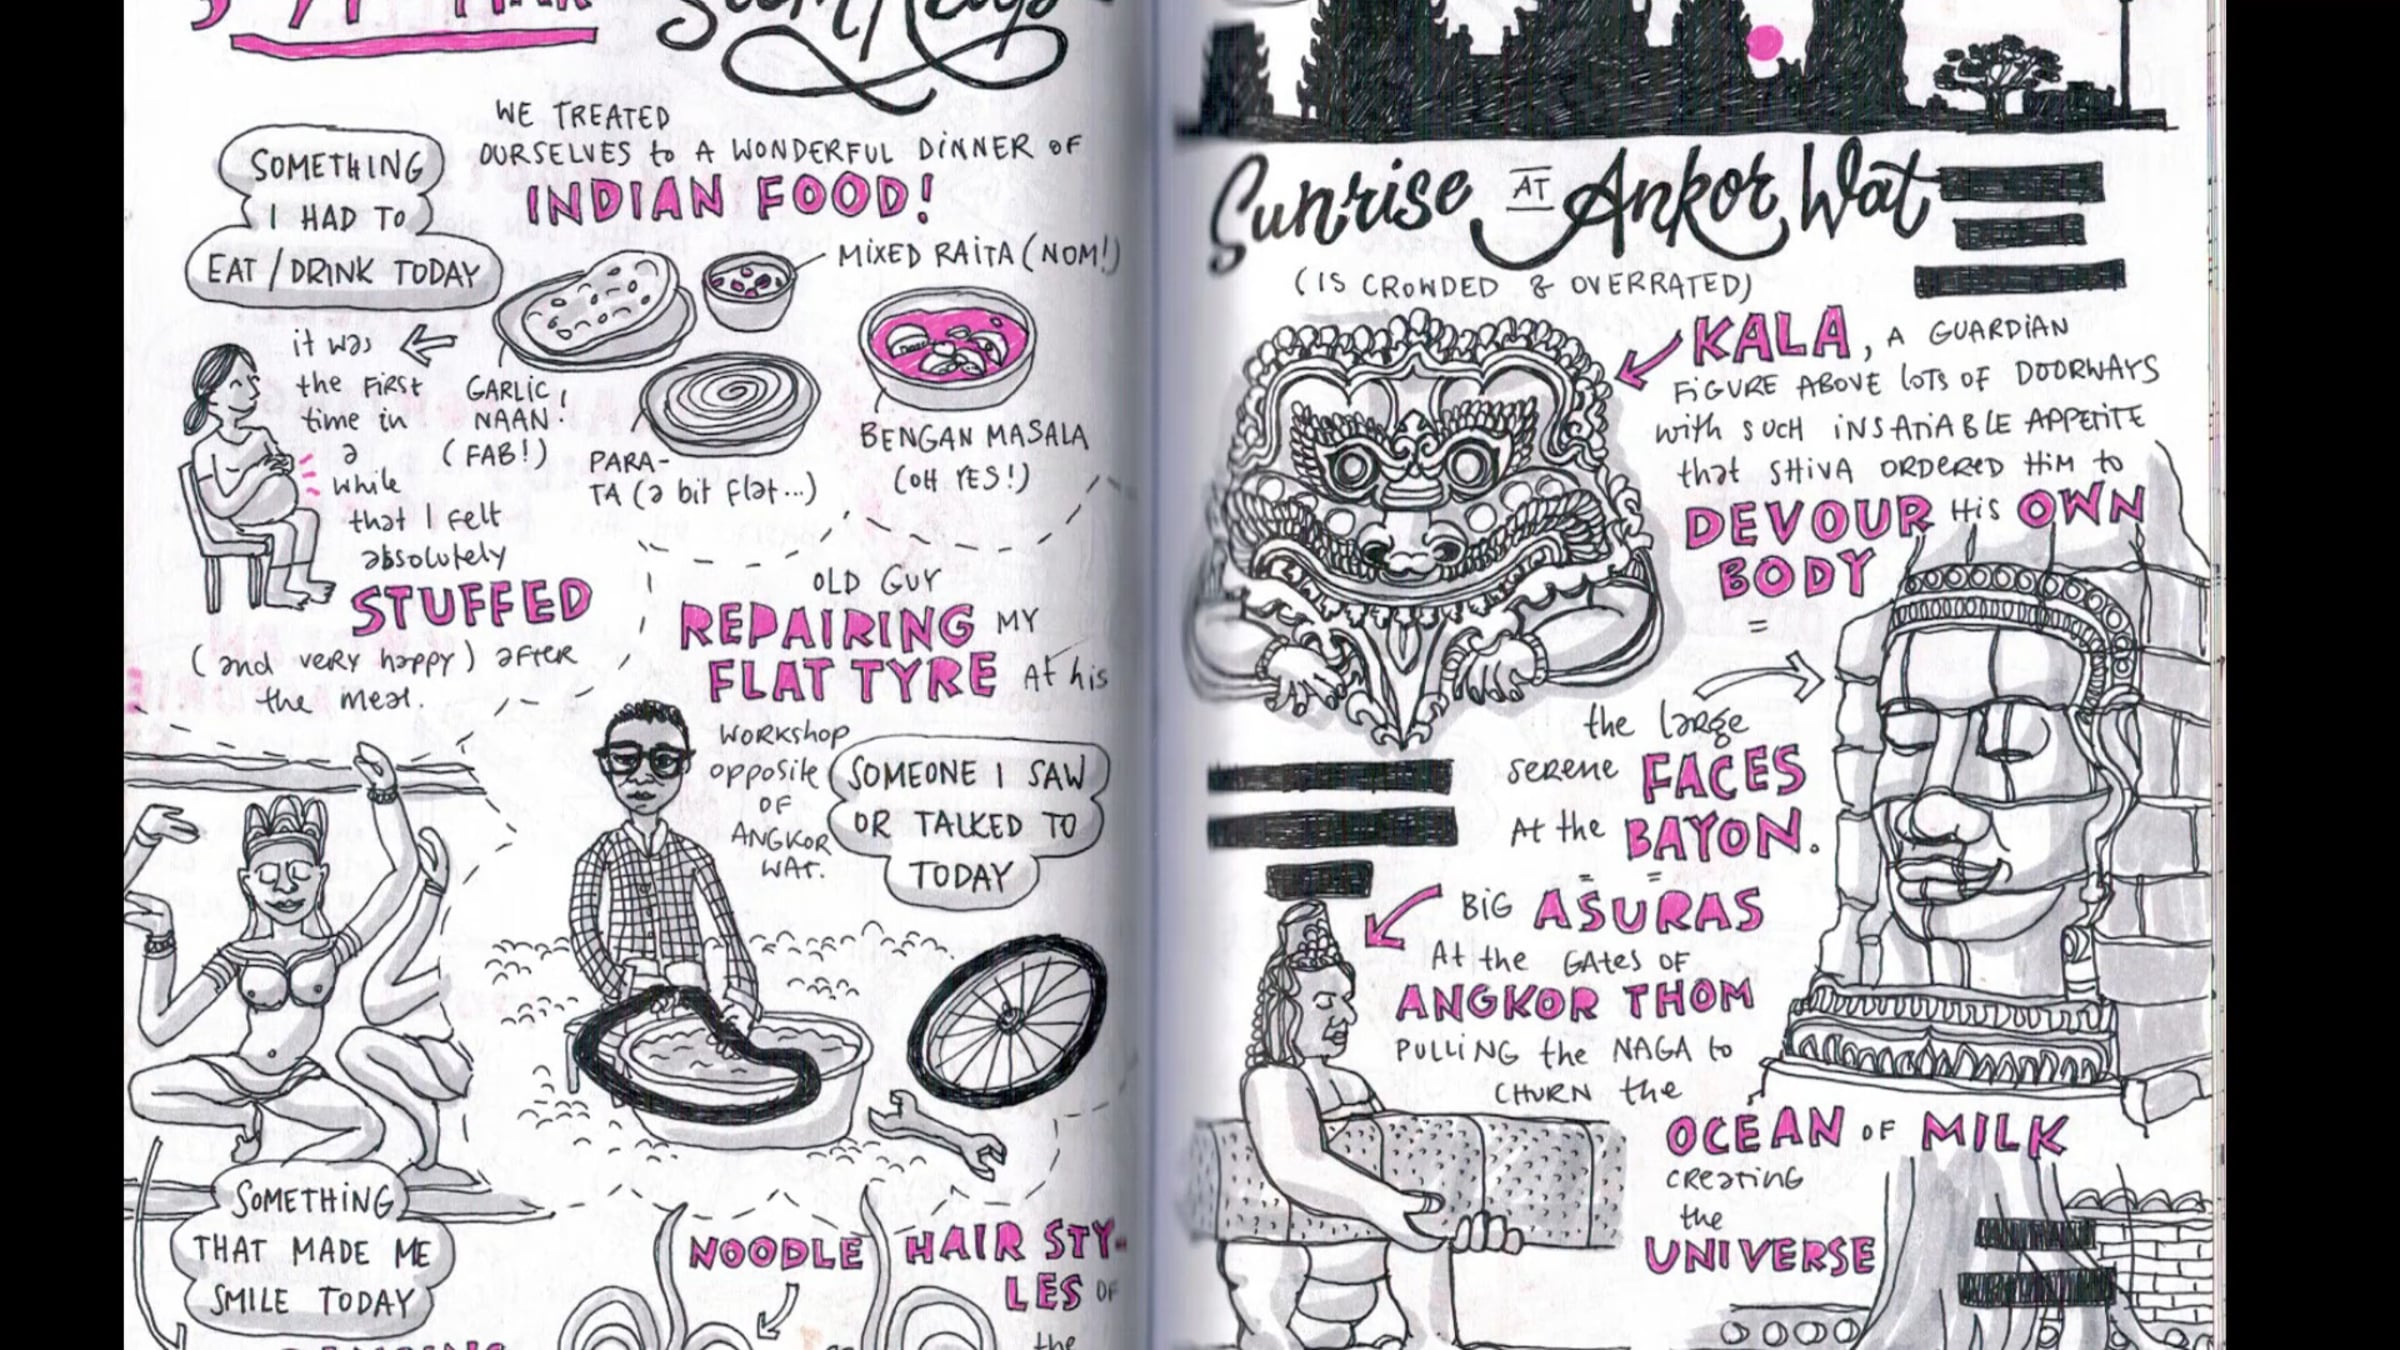 WE TREATED
OURSELVES to A WONDERFUL DINNER OF
INDIAN FOOD!
SOMETHING
I HAD TO
EAT / DRINK TODAY
MIXED RAITA (NOM!)
GARLIC
NAAN
(FAB!)
PARA-
TA (a bit flat...)
BENGAN MASALA
(OH YES!)
it was
the FIRST
time in
a
while
that I felt
absolutely
STUFFED
(and very happy) after
the meal.
OLD GUY
REPAIRING MY
FLAT TYRE At his
WORKSHOP
opposite
OF
ANGKOR
WAT.
SOMEONE I SAW
OR TALKED TO
TODAY
SOMETHING
THAT MADE ME
SMILE TODAY
NOODLE HAIR STY-
LES OF
the
Sunrise AT Ankor Wat
(IS CROWDED & OVERRATED)
KALA, A GUARDIAN
FIGURE ABOVE LOTS OF DOORWAYS
with SUCH INSATIABLE APPETITE
that SHIVA ORDERED HIM to
DEVOUR HIS OWN
BODY
the large
serene FACES
At the BAYON.
BIG ASURAS
At the GATES OF
ANGKOR THOM
PULLING the NAGA to
CHURN the
OCEAN OF MILK
creating
the
UNIVERSE